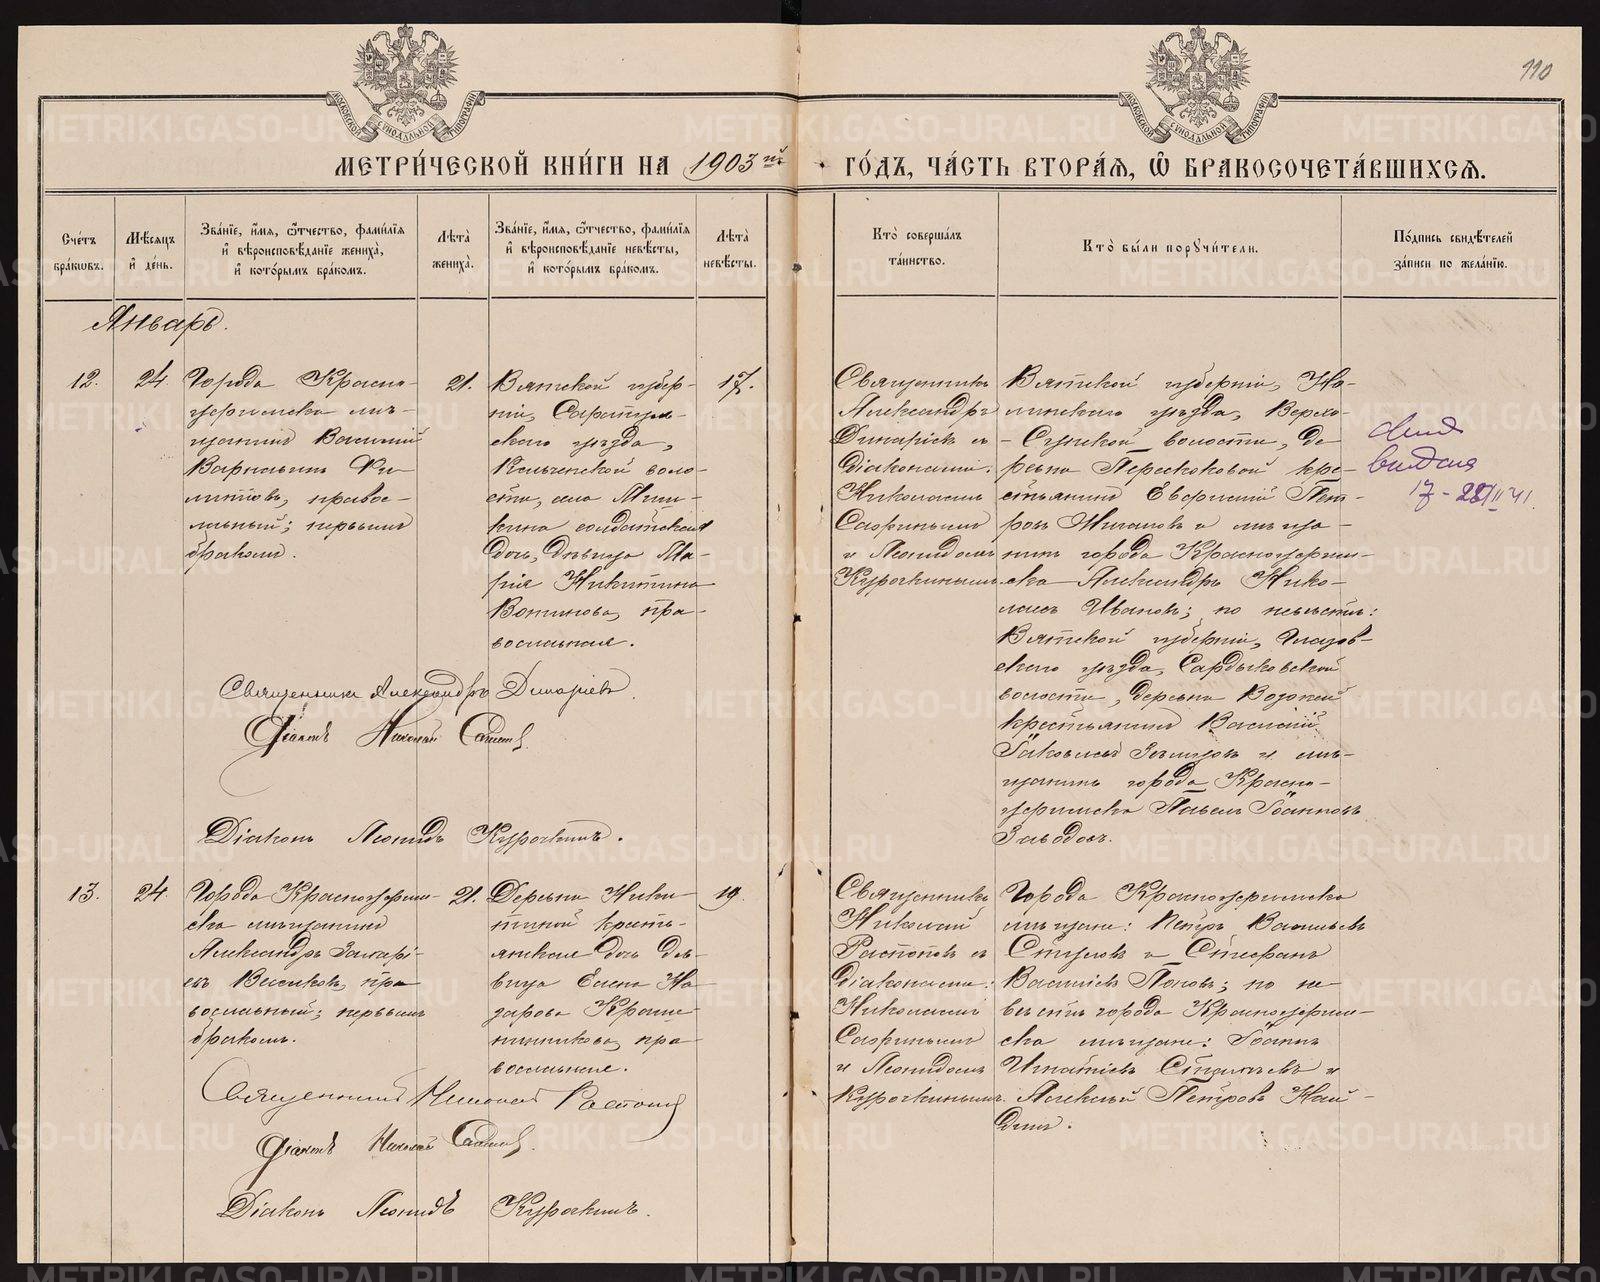 110
МОСКОВСКОЙ СѴНОДАЛЬНОЙ ТИПОГРАФІИ
МОСКОВСКОЙ СѴНОДАЛЬНОЙ ТИПОГРАФІИ
МЕТРИ́ЧЕСКОЙ КНИ́ГИ НА 1903й ГО́ДЪ, ЧА́СТЬ ВТОРА́Я, Ѽ БРАКОСОЧЕТА́ВШИХСЯ.
Сче́тъ бра́кѡвъ.
Мѣ́сяцъ и҆ де́нь.
Зва́нїе, и҆́мя, ѻ҆́тчество, фами́лїя и҆ вѣроисповѣ́данїе жениха̀, и҆ кото́рымъ бра́комъ.
Лѣ́та̀ жениха̀.
Зва́нїе, и҆́мя, ѻ҆́тчество, фами́лїя и҆ вѣроисповѣ́данїе невѣ́сты, и҆ кото́рымъ бра́комъ.
Лѣ́та̀ невѣ́сты.
Кто̀ соверша́лъ та́инство.
Кто̀ бы́ли порꙋчи́тели.
По́дпись свидѣ́телей за́писи по жела́нїю.
Январь.
12.
24.
Города Красно-
уфимска мѣ-
щанинъ Василій
Варнавинъ Фи-
литовъ, правос-
лавный; первымъ
бракомъ.
21.
Вятской губер-
ніи, Сарапуль-
скаго уѣзда,
Кельченской воло-
сти, села Миш-
кина солдатская
дочь, дѣвица Ма-
рія Никитина
Вотинова, пра-
вославная.
17.
Священникъ
Александръ
Динаріевъ съ
діаконами:
Николаемъ
Сафинымъ
и Леонидомъ
Курочкинымъ.
Вятской губерніи, Но-
линскаго уѣзда, Верхо-
-Сунской волости, де
ревни Перескоковой кре-
стьянинъ Евгеній Пет-
ровъ Жигаловъ и мѣща-
нинъ города Красноуфим-
ска Александръ Нико-
лаевъ Ивановъ; по невѣстѣ:
Вятской губерніи, Глазов-
скаго уѣзда, Сардыковской
волости, деревни
крестьянинъ Василій
Іаковлевъ и мѣ-
щанинъ города Красно-
уфимска Павелъ Іоанновъ
Заводовъ.
17-28/II 41.
Священникъ Александръ Динаріевъ
Діаконъ Николай
Діаконъ Леонидъ Курочкинъ.
13.
24.
Города Красноуфим-
ска мѣщанинъ
Александръ Захарі-
евъ пра
вославный; первымъ
бракомъ.
21.
Деревни Ники-
тиной кресть-
янская дочь дѣ-
вица Елена На
зарова
пра-
вославная.
19.
Священникъ
Николай
Распоповъ съ
діаконами:
Николаемъ
Сафинымъ
и Леонидомъ
Курочкинымъ.
Города Красноуфимска
мѣщане: Петръ Васильевъ
и Стефанъ
Васильевъ Поповъ; по не
вѣстѣ города Красноуфим-
ска мѣщане: Іоаннъ
Игнатіевъ и
Алексѣй Петровъ Най-
динъ.
Священникъ Николай Распоповъ
Діаконъ Николай
Діаконъ Леонидъ Курочкинъ.
METRIKI.GASO-URAL.RU